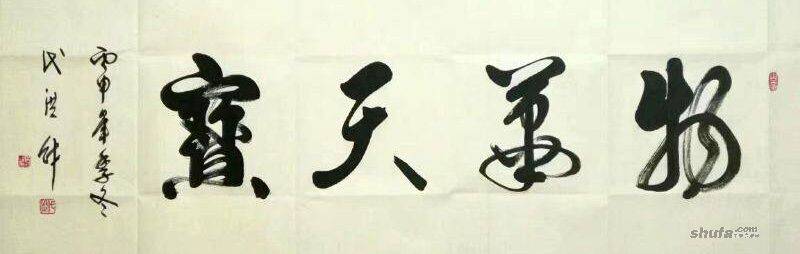 物華天寶
丙申年季冬
shufa.com